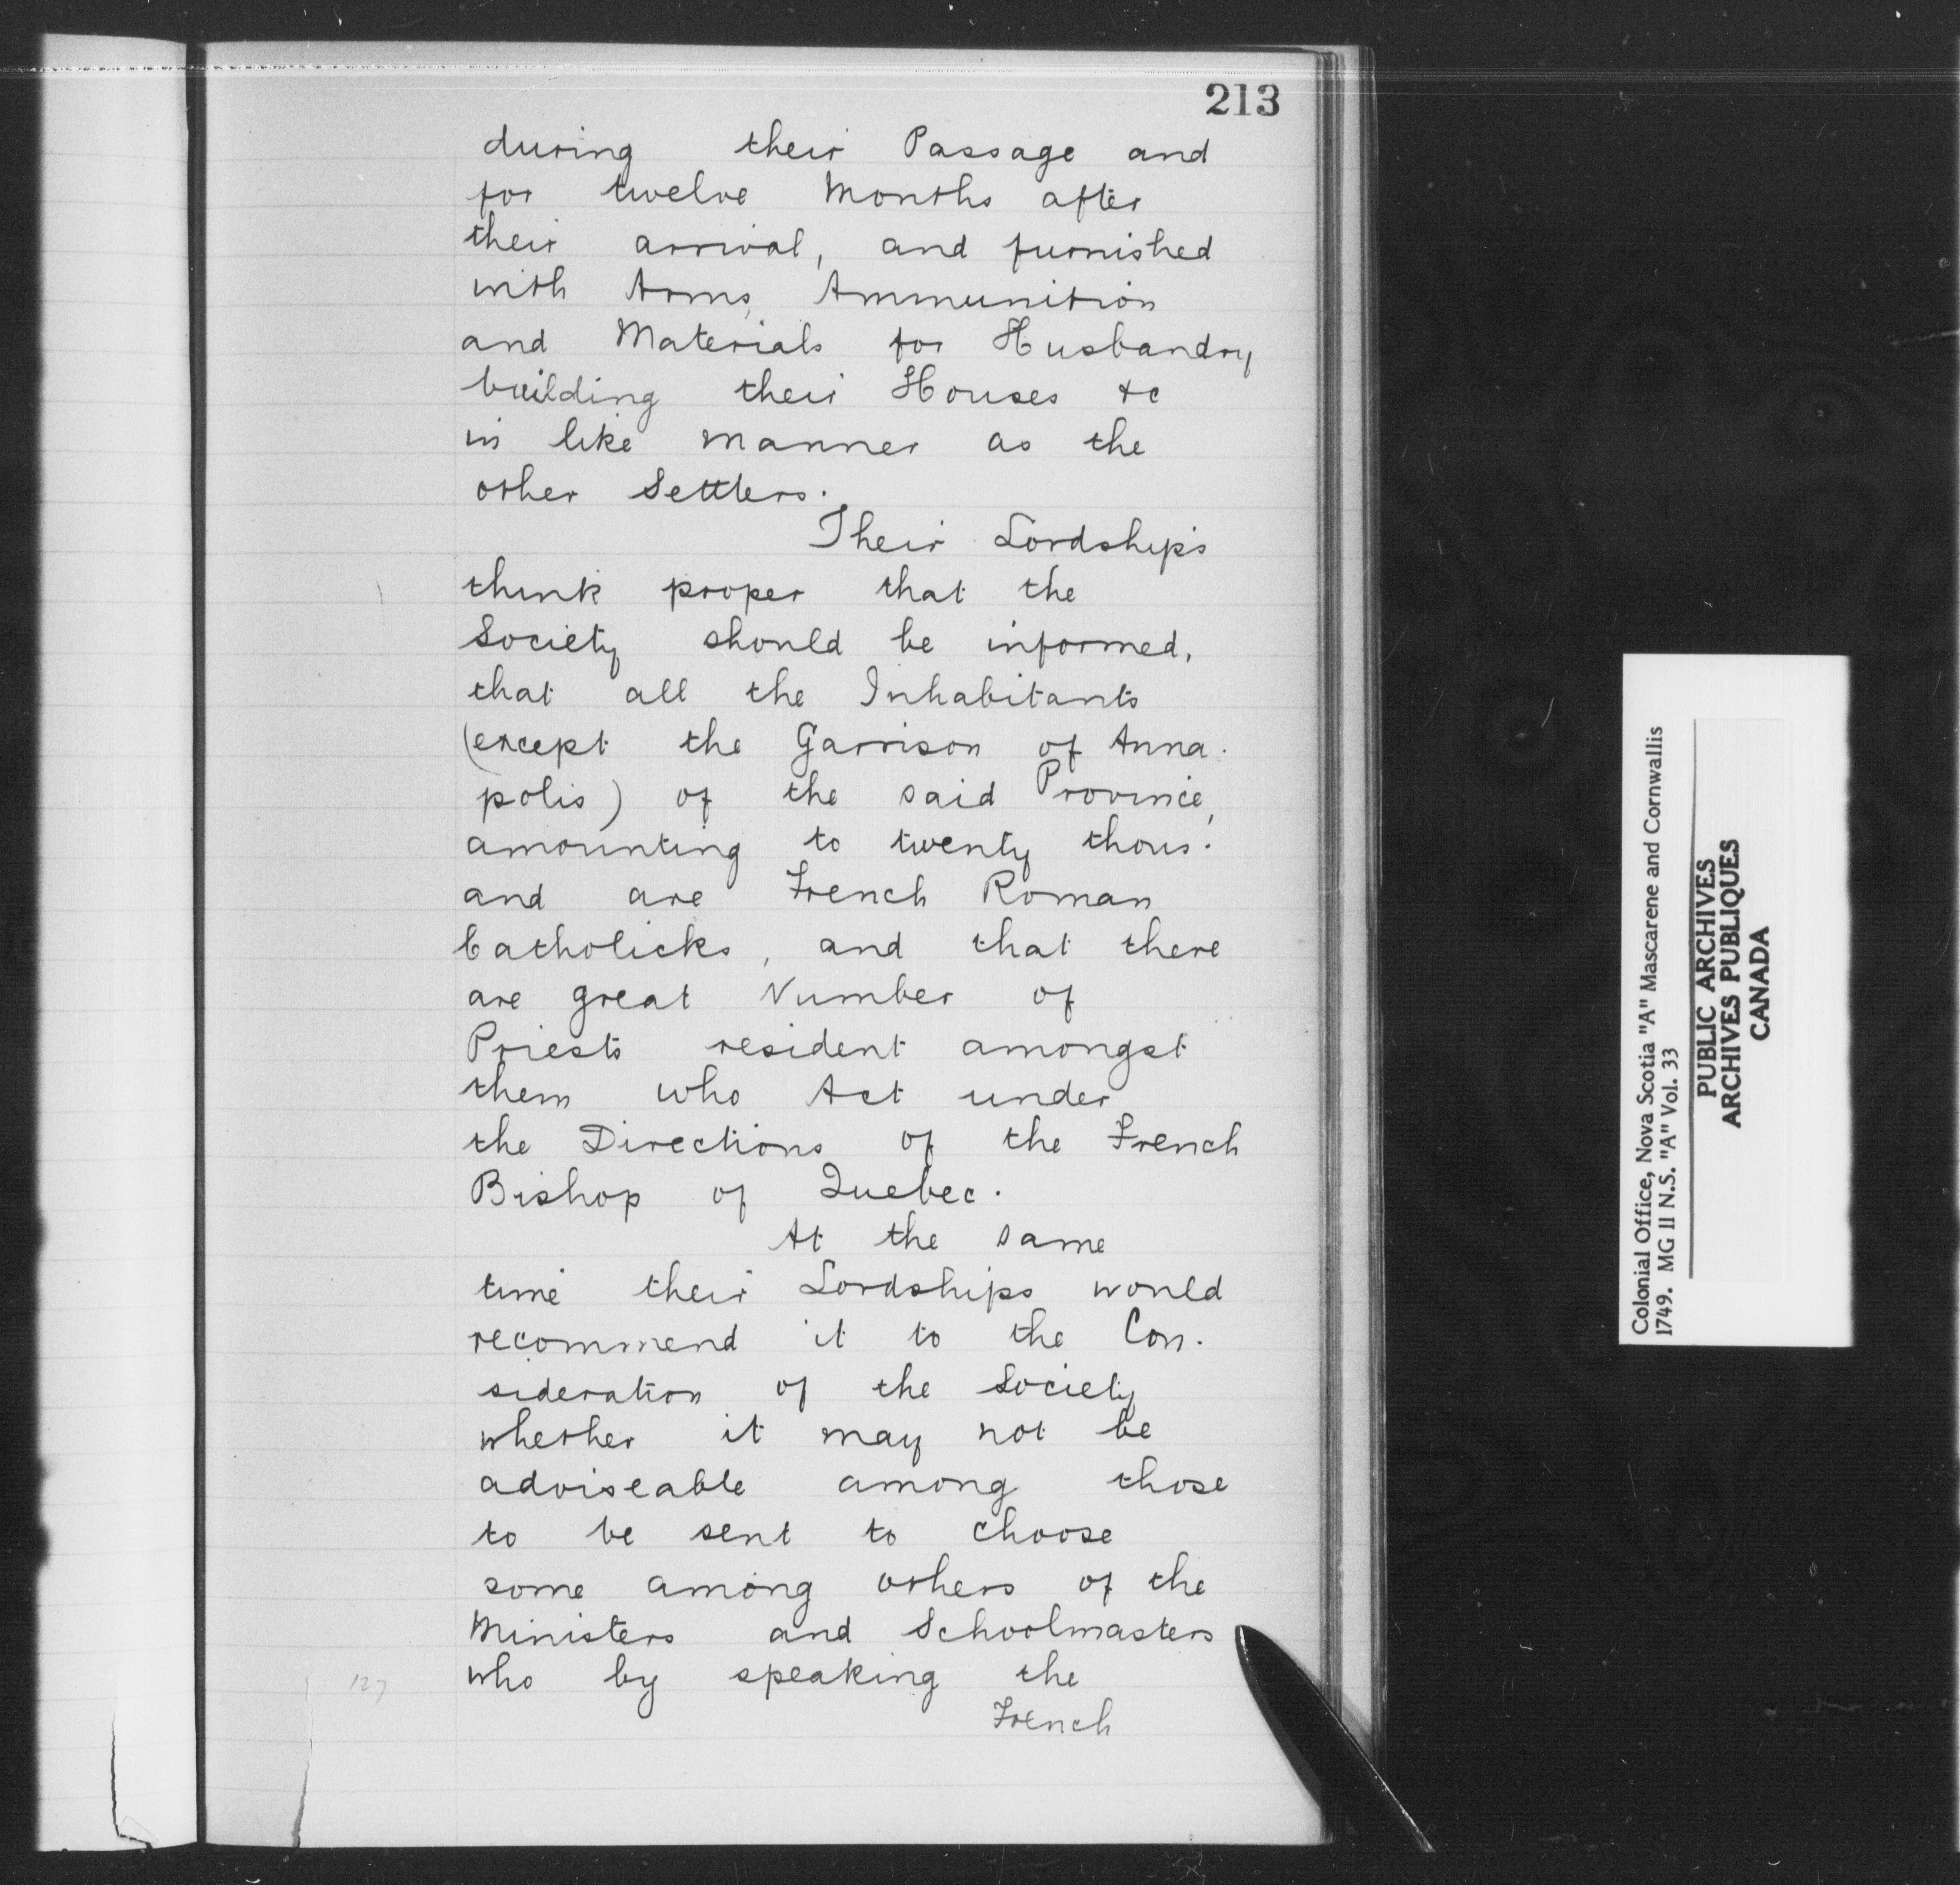 213
during their Passage and
for twelve Months after
their arrival, and furnished
with Arms, Ammunition
and Materials for Husbandry
building their Houses &c
in like manner as the
other Settlers.
Their Lordships
think proper that the
Society should be informed,
that all the Inhabitants
(except the Garrison of Anna-
polis) of the said Province,
amounting to twenty thous-
and are French Roman
Catholicks, and that there
are great Number of
Priests resident amongst
them who Act under
the Directions of the French
Bishop of Quebec.
At the same
time their Lordships would
recommend it to the Con-
sideration of the Society
whether it may not be
adviseable among those
to be sent to choose
some among others of the
Ministers and Schoolmasters
who by speaking the
French
127
Colonial Office, Nova Scotia "A" Mascarene and Cornwallis
1749. MG 11 N.S. "A" Vol. 33
PUBLIC ARCHIVES
ARCHIVES PUBLIQUES
CANADA